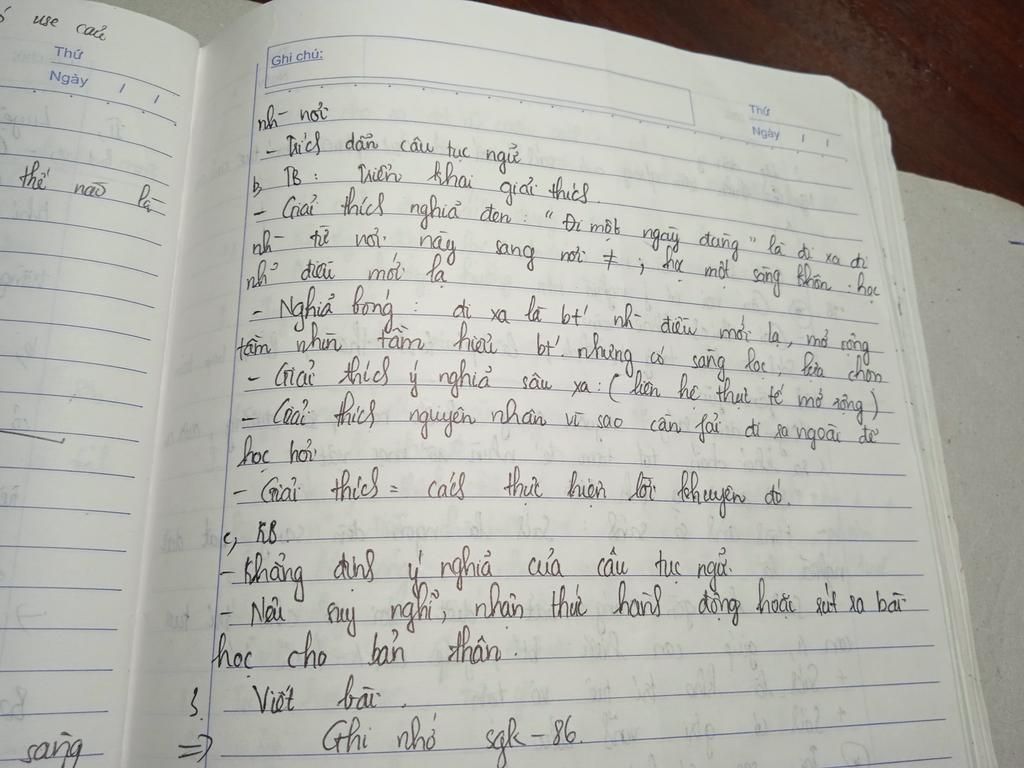 use cấu
Thứ
Ngày / /
thế nào là
sang
Ghi chú:
Thứ
Ngày / /
nh~ nơi
- Trích dẫn câu tục ngữ
b, TB: Triển khai giải thích.
- Giải thích nghĩa đen: "Đi một ngày đàng" là đi xa đi
nh~ từ nơi này sang nơi ≠; học một sàng khôn: học
nh~ điều mới lạ
- Nghĩa bóng: đi xa là bt' nh~ điều mới lạ, mở rộng
tầm nhìn tầm hiểu bt' nhưng có sàng lọc, lựa chọn
- Giải thích ý nghĩa sâu xa: (liên hệ thực tế mở rộng)
- Giải thích nguyên nhân vì sao cần fải đi ra ngoài để
học hỏi.
- Giải thích = cách thực hiện lời khuyên đó.
c, KB
- Khẳng định ý nghĩa của câu tục ngữ.
- Nêu suy nghĩ, nhận thức hành động hoặc rút ra bài
học cho bản thân.
3. Viết bài.
=> Ghi nhớ sgk - 86.